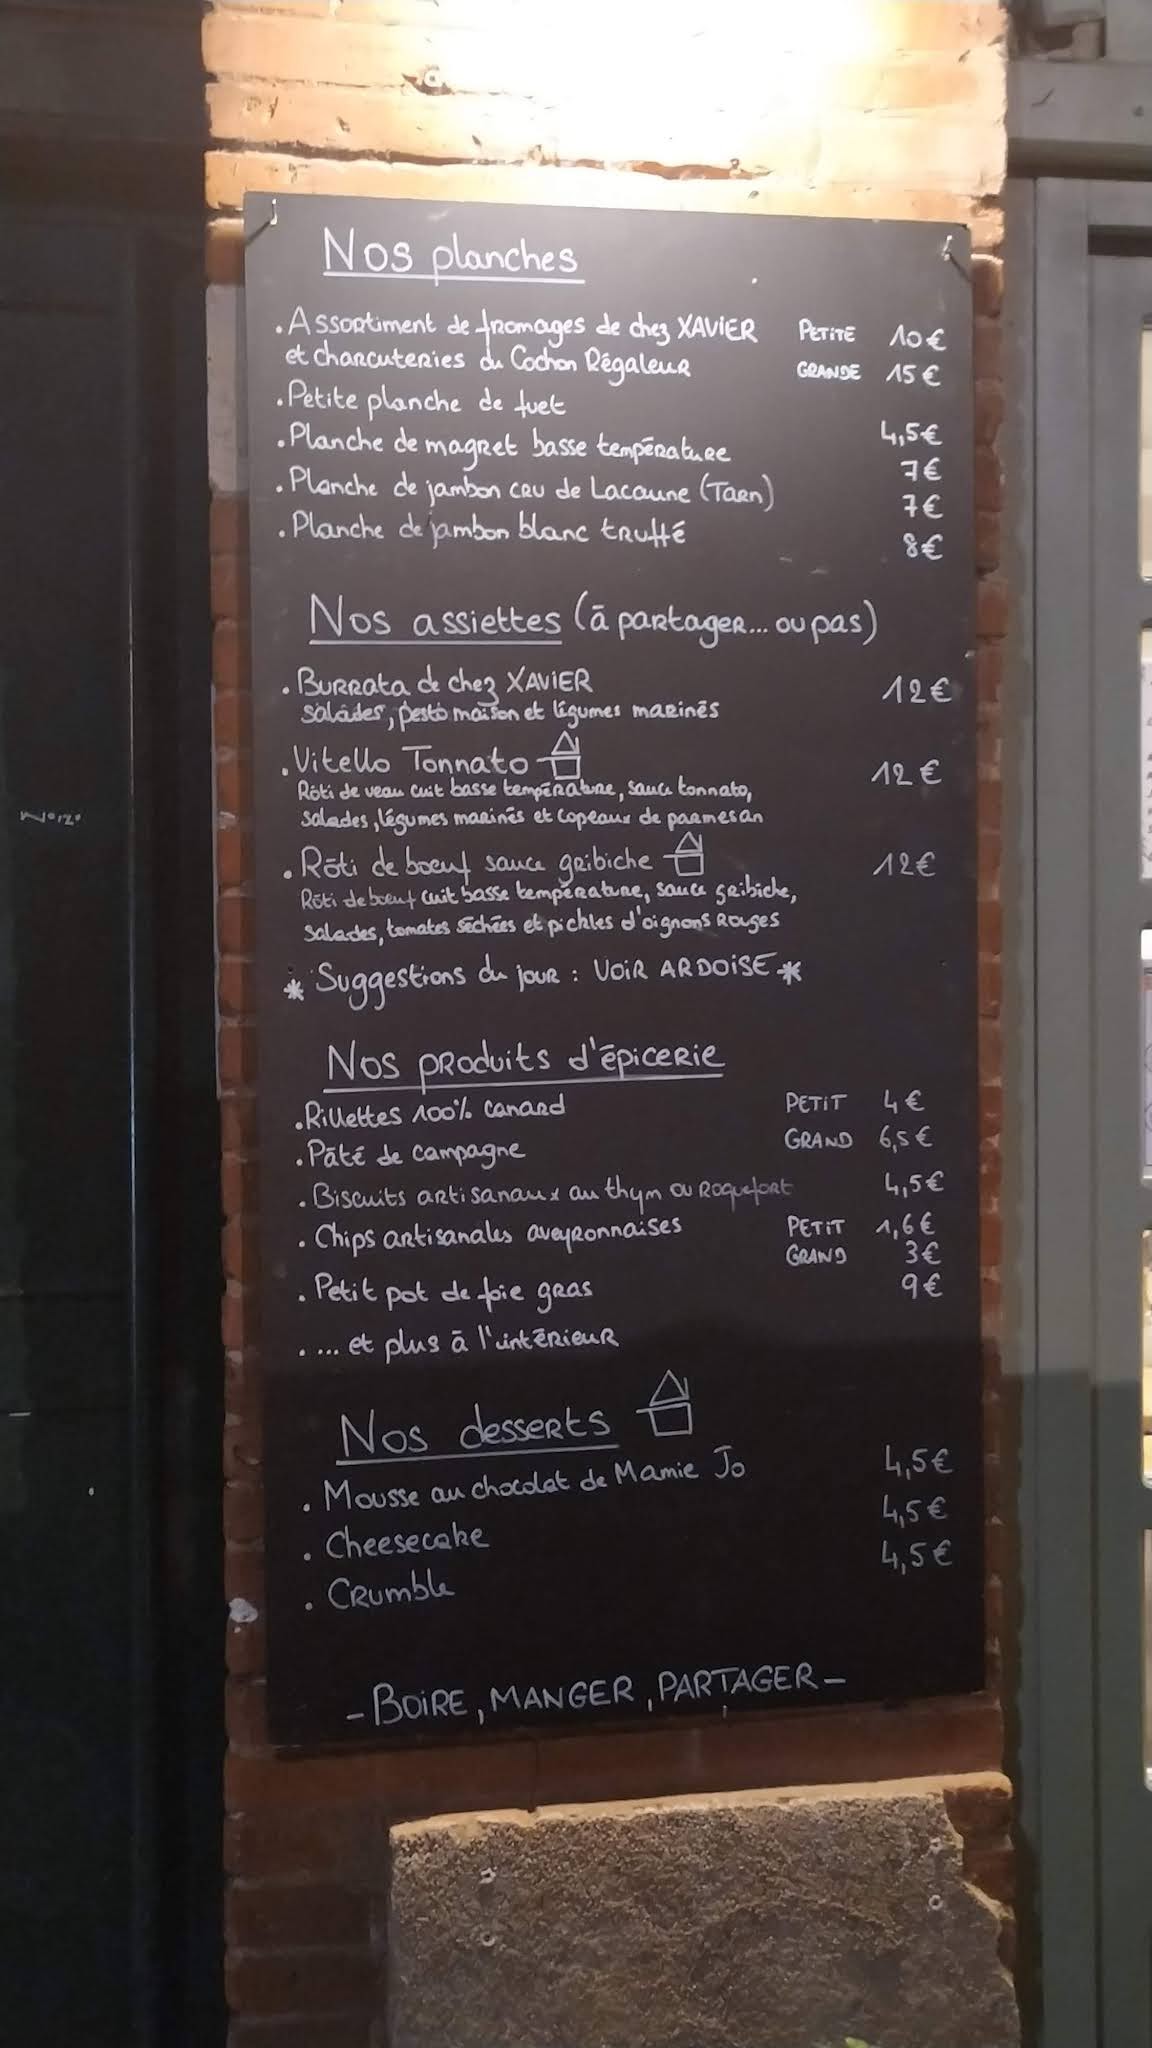 Nos planches
. Assortiment de fromages de chez XAVIER PETITE 10€
et charcuteries du Cochon Régaleur GRANDE 15€
. Petite planche de fuet 4,5€
. Planche de magret basse température 7€
. Planche de jambon cru de Lacaune (Tarn) 7€
. Planche de jambon blanc truffé 8€
Nos assiettes (à partager... ou pas)
. Burrata de chez XAVIER 12€
Salades, pesto maison et légumes marinés
. Vitello Tonnato 12€
Rôti de veau cuit basse température, sauce tonnato,
salades, légumes marinés et copeaux de parmesan
. Rôti de boeuf sauce gribiche 12€
Rôti de boeuf cuit basse température, sauce gribiche,
Salades, tomates séchées et pickles d'oignons Rouges
* Suggestions du jour : VOIR ARDOISE *
Nos produits d'épicerie
. Rillettes 100% canard PETIT 4€
. Pâté de campagne GRAND 6,5€
. Biscuits artisanaux au thym ou Roquefort 4,5€
. Chips artisanales aveyronnaises PETIT 1,6€
GRAND 3€
. Petit pot de foie gras 9€
. ... et plus à l'intérieur
Nos desserts
. Mousse au chocolat de Mamie Jo 4,5€
. Cheesecake 4,5€
. Crumble 4,5€
- BOIRE, MANGER, PARTAGER -